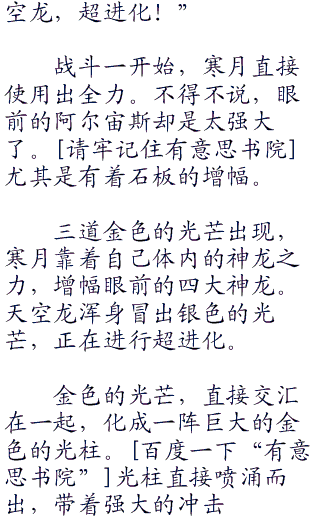 空龙，超进化！”
战斗一开始，寒月直接
使用出全力。不得不说，眼
前的阿尔宙斯却是太强大
了。[请牢记住有意思书院]
尤其是有着石板的增幅。
三道金色的光芒出现，
寒月靠着自己体内的神龙之
力，增幅眼前的四大神龙。
天空龙浑身冒出银色的光
芒，正在进行超进化。
金色的光芒，直接交汇
在一起，化成一阵巨大的金
色的光柱。[百度一下“有意
思书院”]光柱直接喷涌而
出，带着强大的冲击